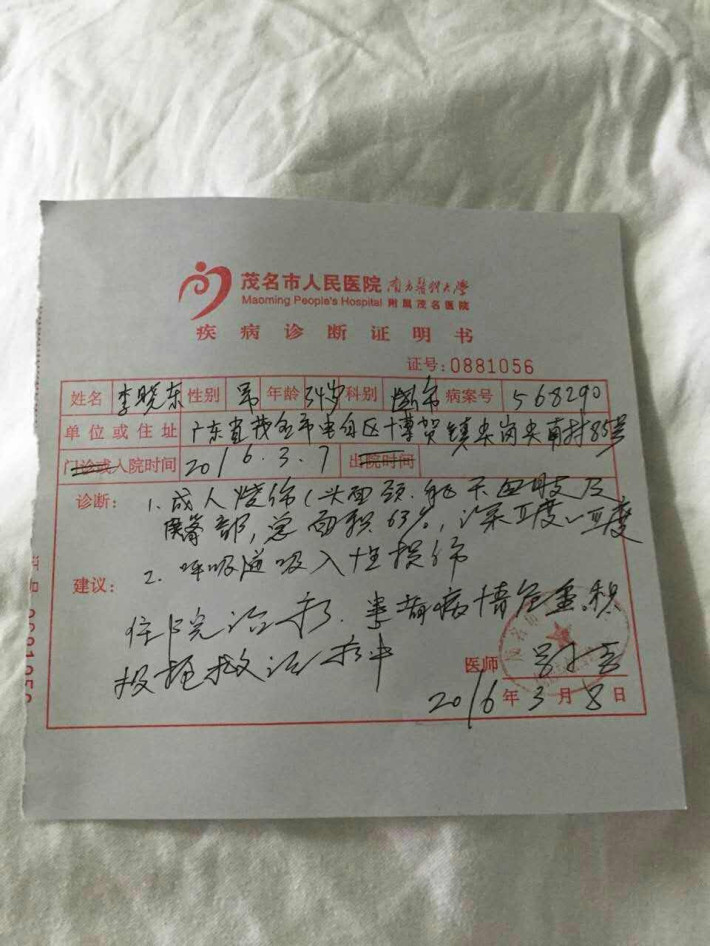 茂名市人民医院 南方医科大学
Maoming People's Hospital 附属茂名医院
疾病诊断证明书
证号:0881056
姓名 李晓东 性别 男 年龄 34岁 科别 烧伤 病案号 568290
单位或住址 广东省茂名市电白区博贺镇尖岗尖南村85号
门诊或入院时间 2016.3.7 出院时间
诊断: 1. 成人烧伤(头面颈、躯干四肢及
臀部,总面积63%,深Ⅱ度~Ⅲ度
2. 呼吸道吸入性损伤
建议:
住院治疗.患者病情危重,积
极抢救治疗中
医师
2016年3月8日